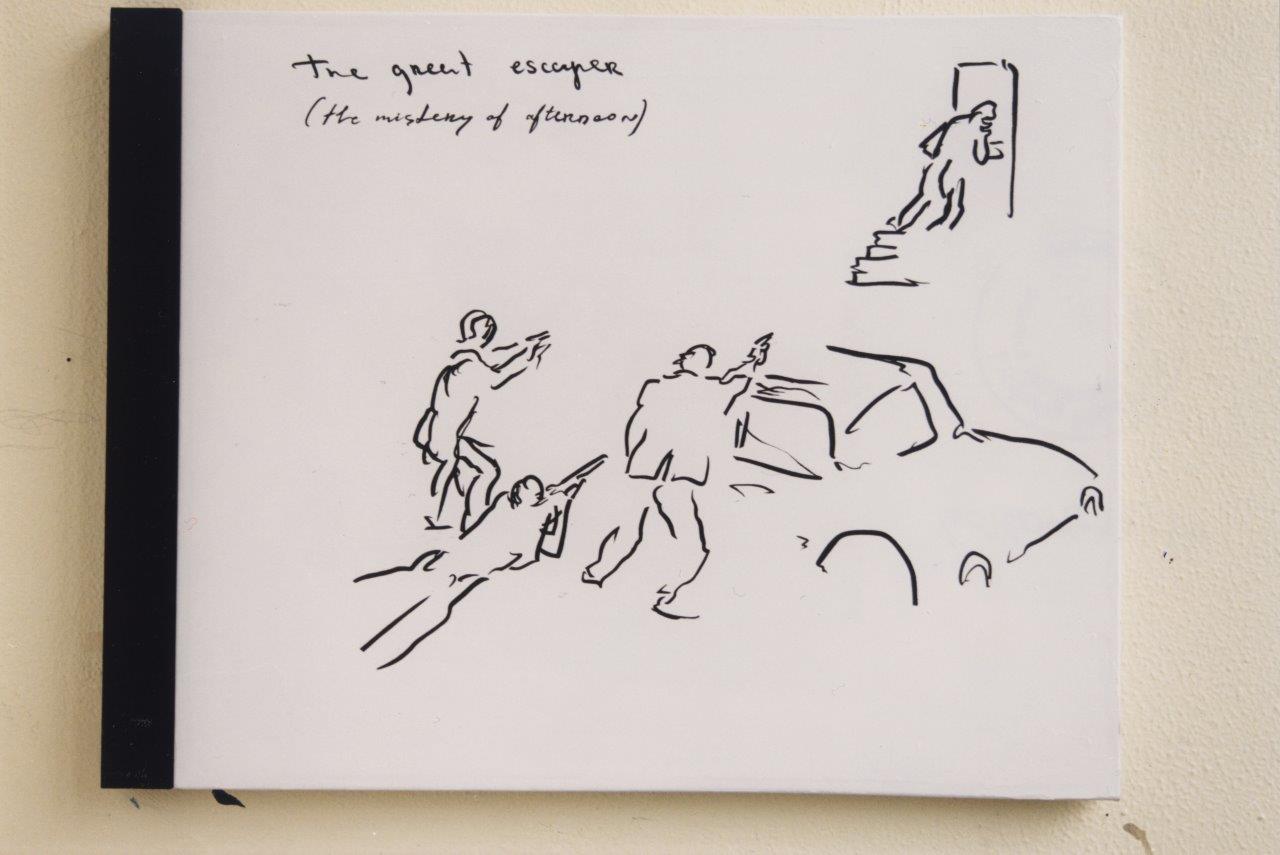 The great escaper
(the mistery of afternoon)